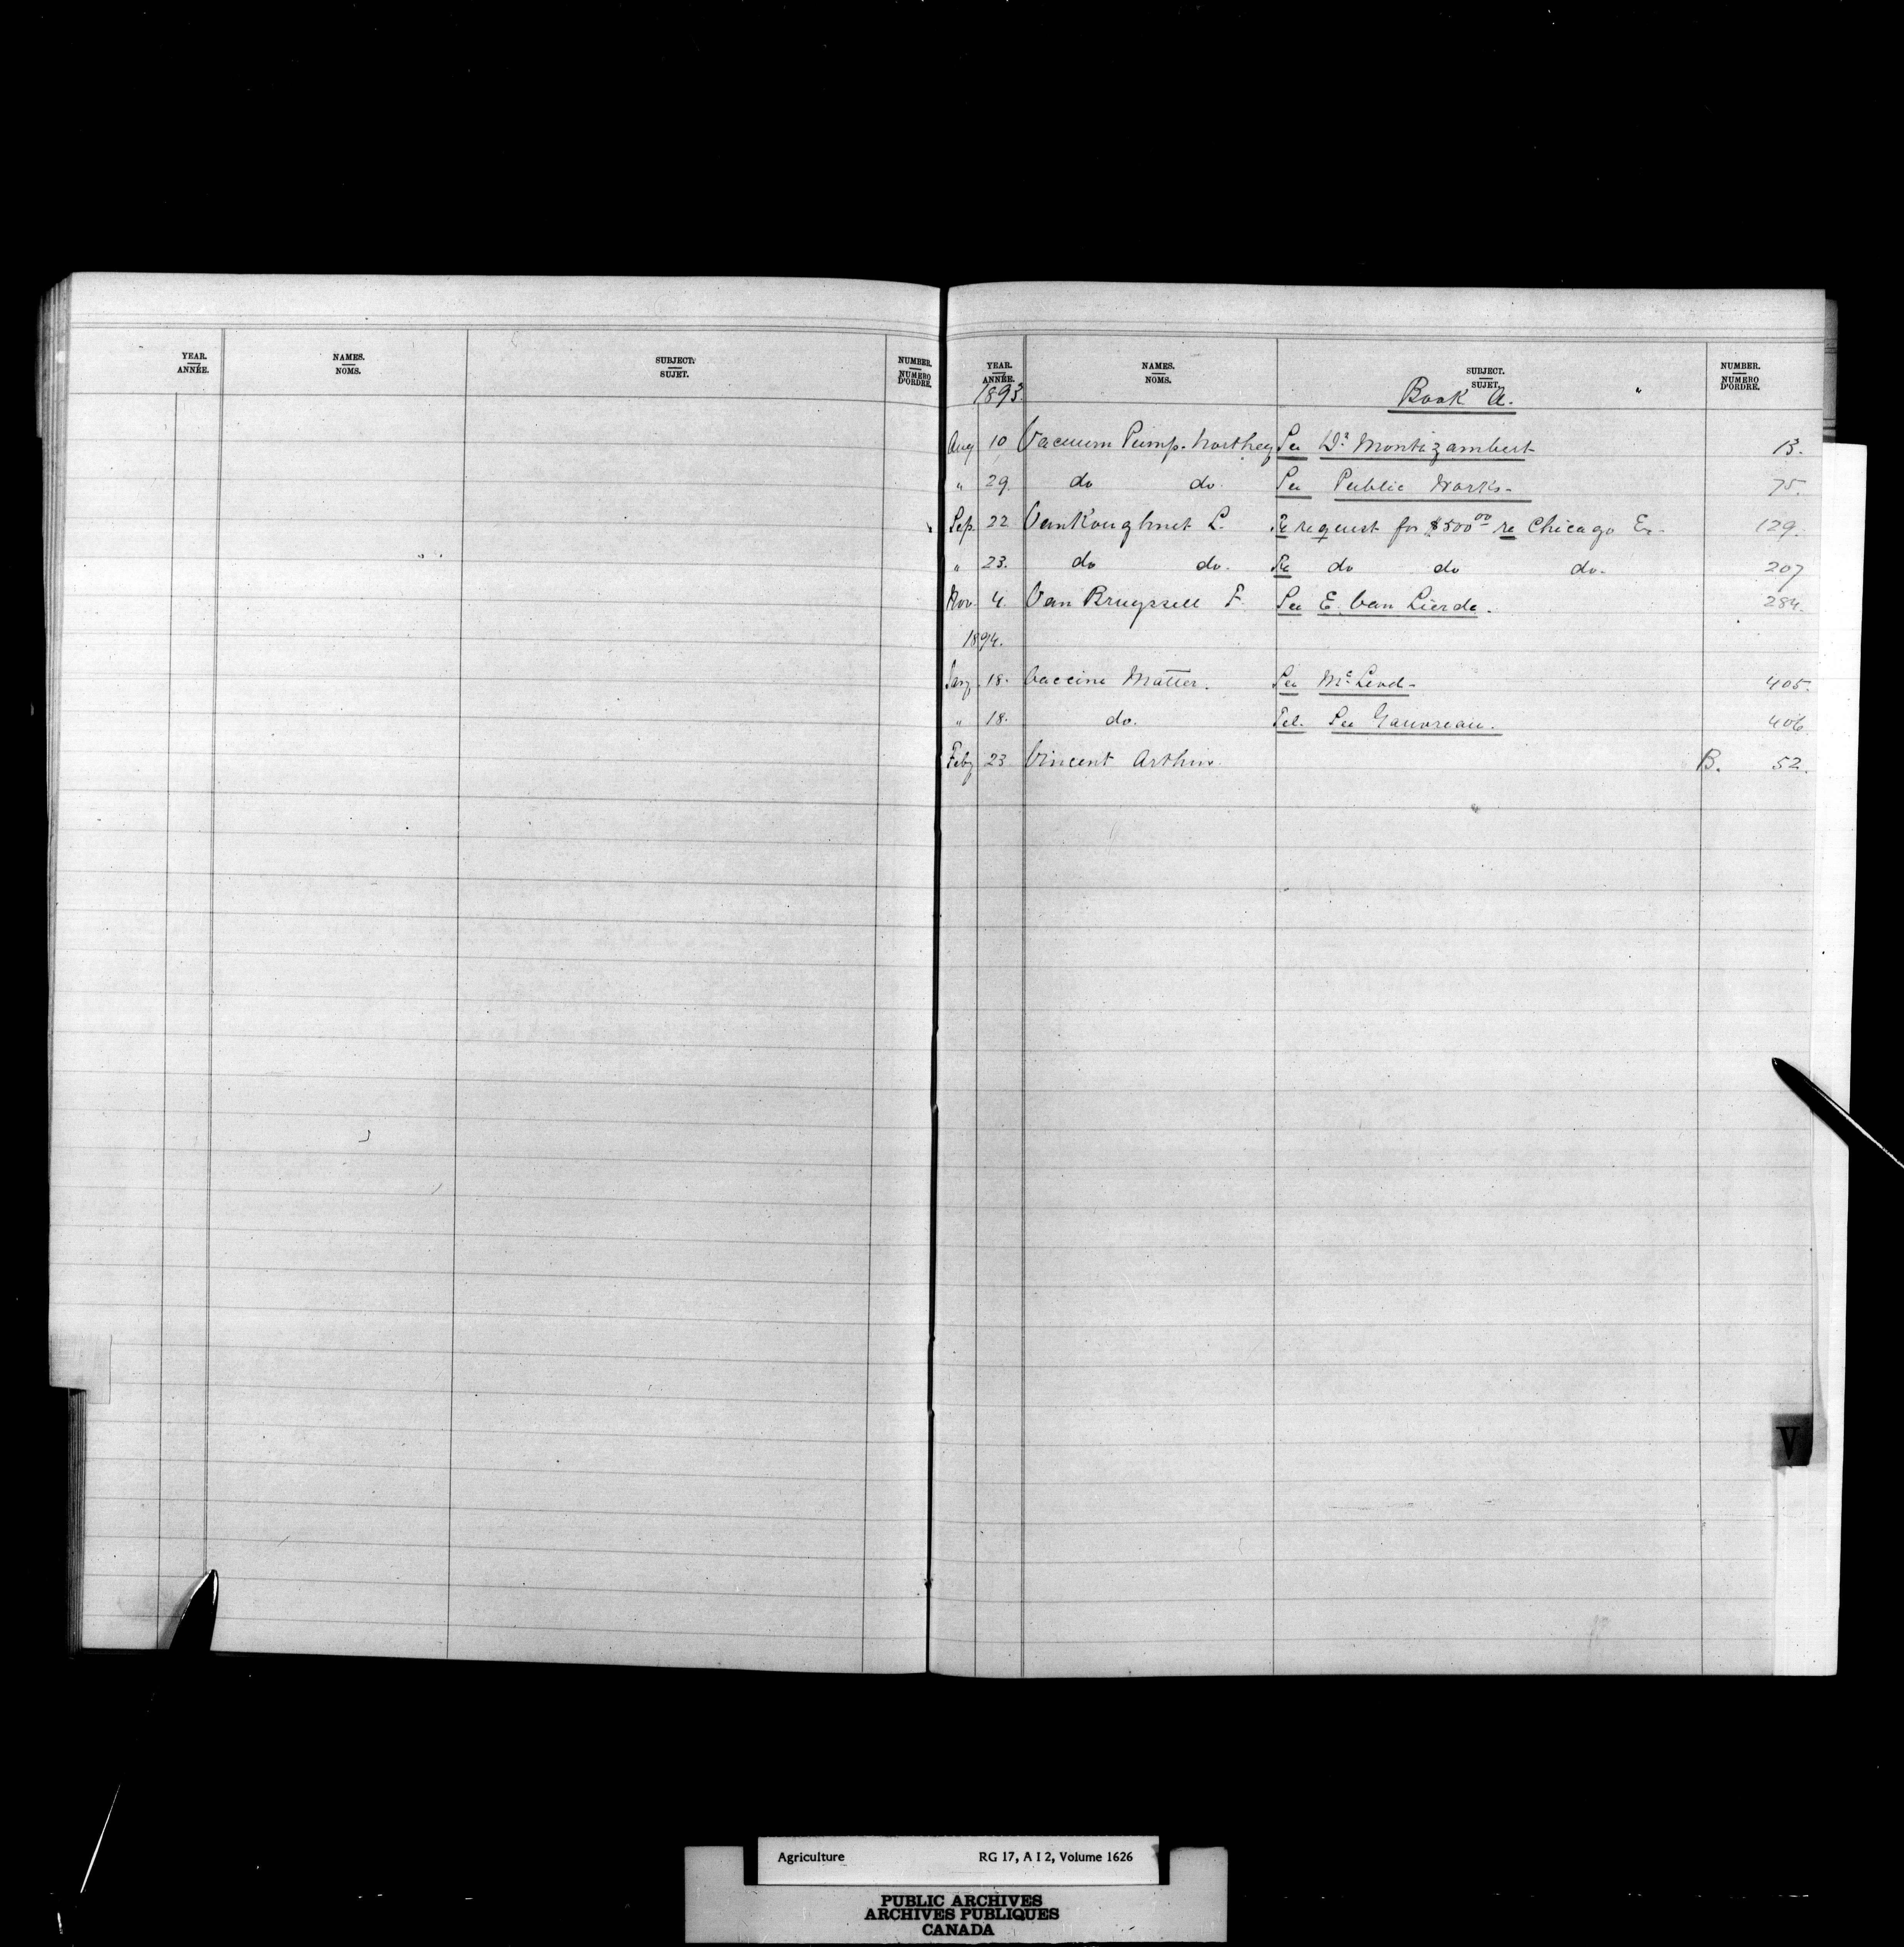 YEAR. NAMES. SUBJECT. NUMBER.
ANNÉE. NOMS. SUJET. NUMERO D'ORDRE.
YEAR. NAMES. SUBJECT. NUMBER.
ANNÉE. NOMS. SUJET. NUMERO D'ORDRE.
1893. Book A.
Aug 10 Vacuum Pump. Northey See Dr Montizambert 13.
" 29. do do. See Public Works - 75.
Sep. 22 VanKoughnet L. Re request for $500 00 re Chicago Ex- 129.
" 23. do do. Re do do do. 207
Nov. 4. Van Bruyssell F. See E. Van Lierde. 284.
1894.
Jany 18. Vaccine Matter. See McLeod - 405.
" 18. do. Tel. See Gauvreau. 406.
Feby 23 Vincent Arthur. B. 52.
V
Agriculture RG 17, A I 2, Volume 1626
PUBLIC ARCHIVES
ARCHIVES PUBLIQUES
CANADA